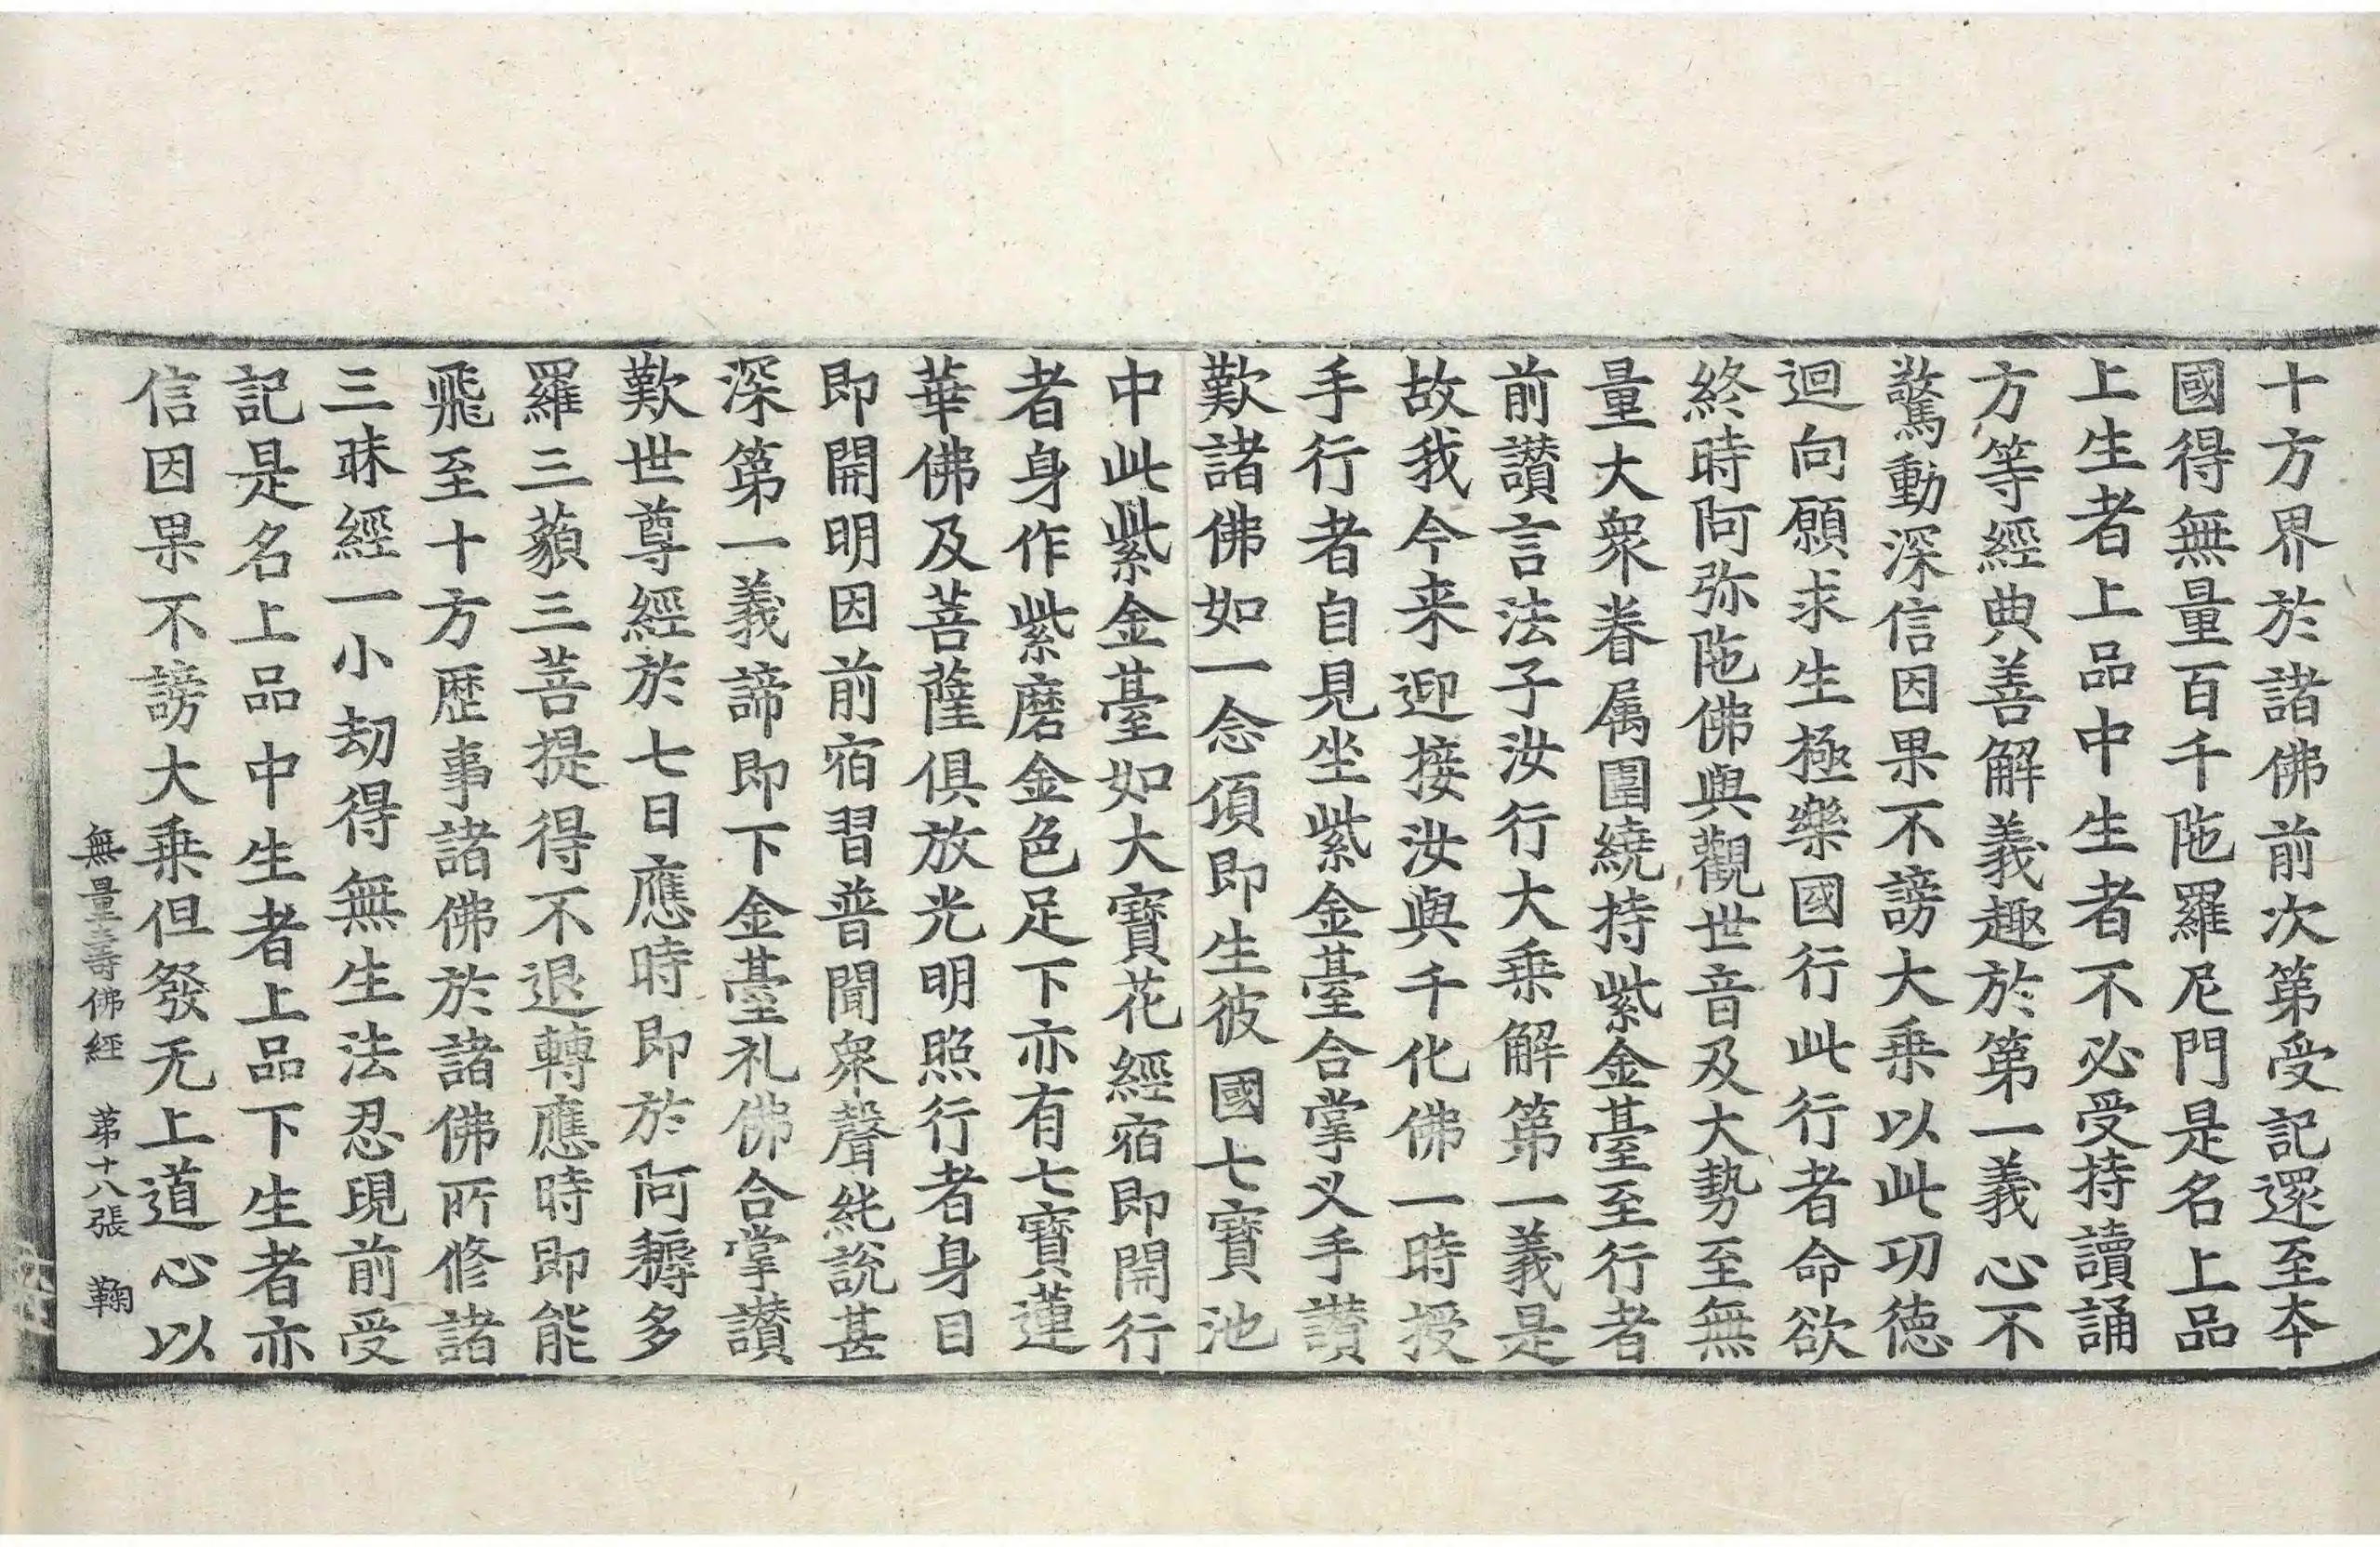 十方界於諸佛前次第受記還至本
國得無量百千陁羅尼門是名上品
上生者上品中生者不必受持讀誦
方等經典善解義趣於第一義心不
驚動深信因果不謗大乗以此功德
迴向願求生極樂國行此行者命欲
終時阿弥陁佛與觀世音及大勢至無
量大衆眷属圍繞持紫金臺至行者
前讃言法子汝行大乗解第一義是
故我今来迎接汝與千化佛一時授
手行者自見坐紫金臺合掌叉手讃
歎諸佛如一念頃即生彼國七寶池
中此紫金臺如大寶花經宿即開行
者身作紫磨金色足下亦有七寶蓮
華佛及菩薩俱放光明照行者身目
即開明因前宿習普聞衆聲純說甚
深第一義諦即下金臺礼佛合掌讃
歎世尊經於七日應時即於阿耨多
羅三藐三菩提得不退轉應時即能
飛至十方歷事諸佛於諸佛所修諸
三昧經一小劫得無生法忍現前受
記是名上品中生者上品下生者亦
信因果不謗大乗但發无上道心以
無量壽佛經 苐十八張 鞠